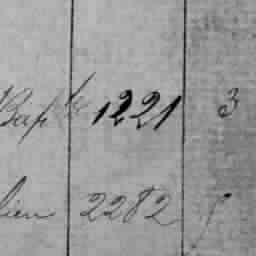 Bapte 1221 3
lien 2282